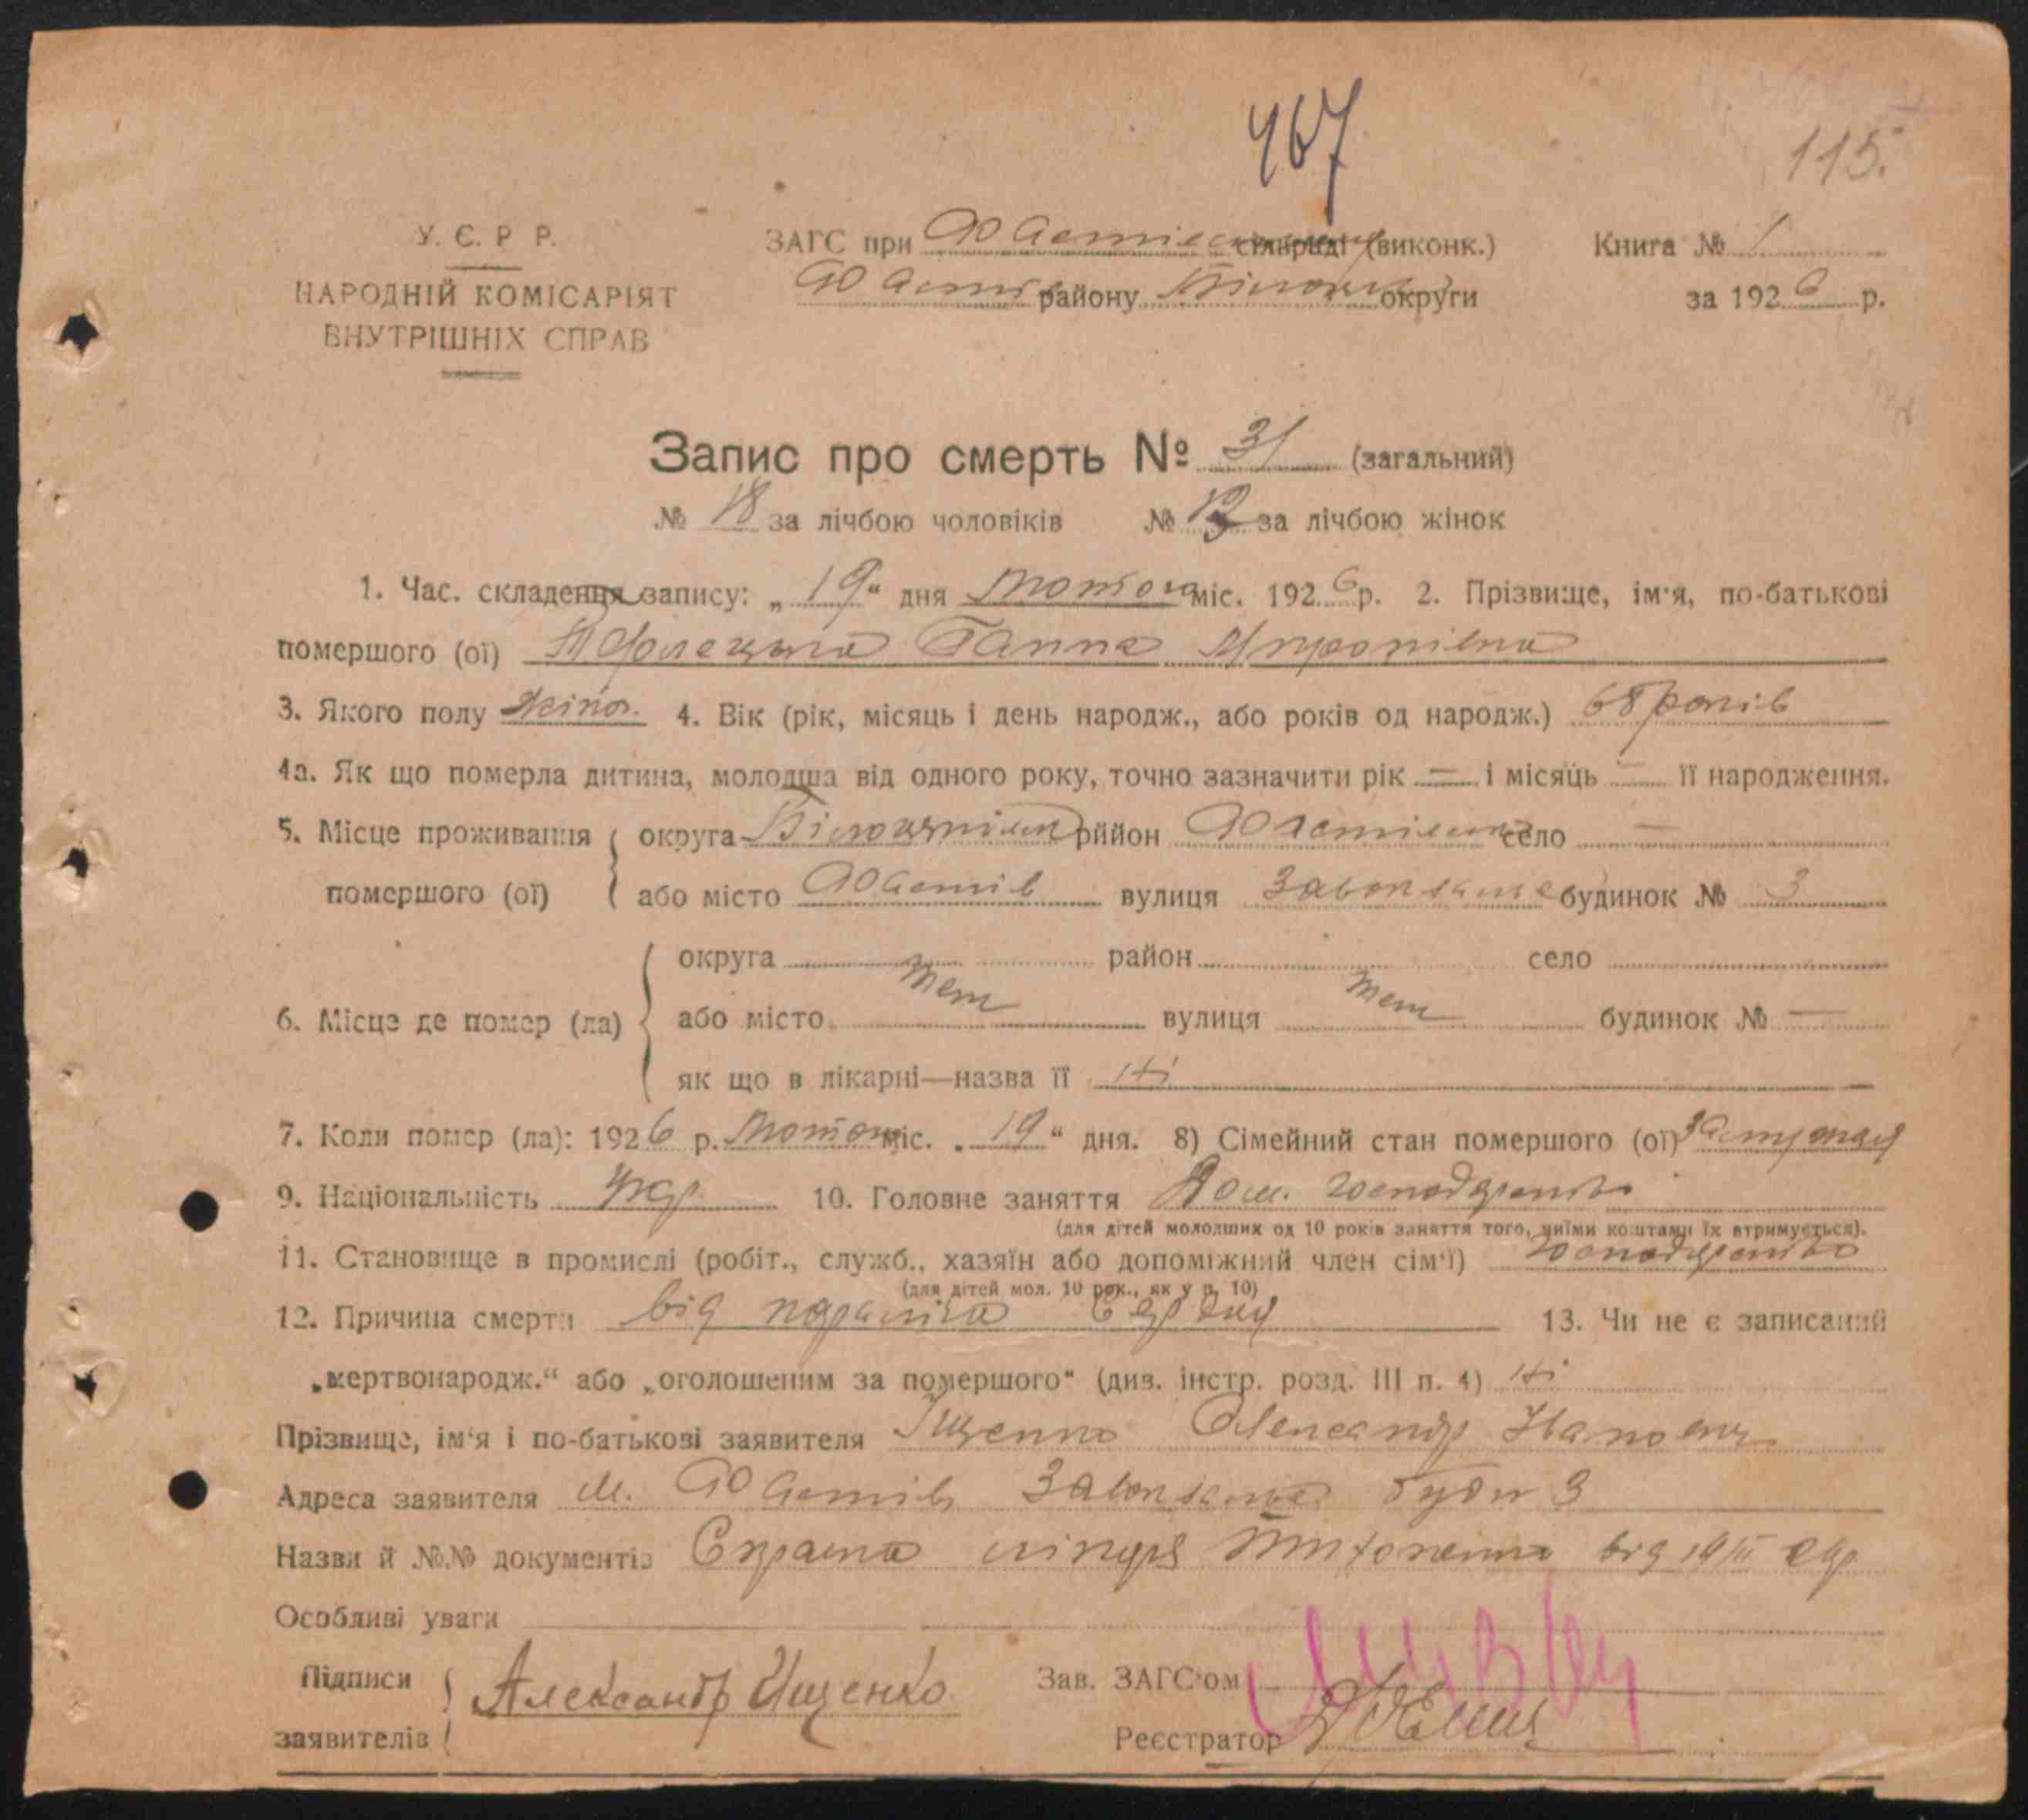 467
115.
У. С. Р Р.
ЗАГС при Фастівському сільраді (виконк.)
Книга № 1
НАРОДНІЙ КОМІСАРІЯТ
Фастів району Білоцерк округи
за 1926 р.
ВНУТРІШНІХ СПРАВ
Запис про смерть № 31 (загальний)
№ 18 за лічбою чоловіків № 13 за лічбою жінок
1. Час. складення запису: „19“ дня лютого міс. 1926 р. 2. Прізвище, ім'я, по-батькові
помершого (ої) Ганна
3. Якого полу жіноч. 4. Вік (рік, місяць і день народж., або років од народж.) 68 років
4а. Як що померла дитина, молодша від одного року, точно зазначити рік — і місяць — її народження.
5. Місце проживання округа Білоцерківськ рййон Фастівськ село —
помершого (ої) або місто Фастів вулиця Завокзальна будинок № 3
округа район село
6. Місце де помер (ла) або місто вулиця будинок № —
як що в лікарні—назва її Ні
7. Коли помер (ла): 1926 р. лютого міс. „19“ дня. 8) Сімейний стан помершого (ої)
9. Національність Укр. 10. Головне заняття Дом. господарство
(для дітей молодших од 10 років заняття того, чиїми коштами їх втримується).
11. Становище в промислі (робіт., служб., хазяїн або допоміжний член сім'ї) господарство
(для дітей мол. 10 рок., як у п. 10)
12. Причина смерти від параліча сердця 13. Чи не є записаний
„мертвонародж.“ або „оголошеним за помершого“ (див. інстр. розд. III п. 4) Ні
Прізвище, ім'я і по-батькові заявителя Іщенко Олександр Іванович
Адреса заявителя м. Фастів Завокзальна буди 3
Назви й №№ документів Справка лікаря від 19/II 26р
Особливі уваги
Підписи
заявителів Александр Ищенко
Зав. ЗАГС'ом
Реєстратор